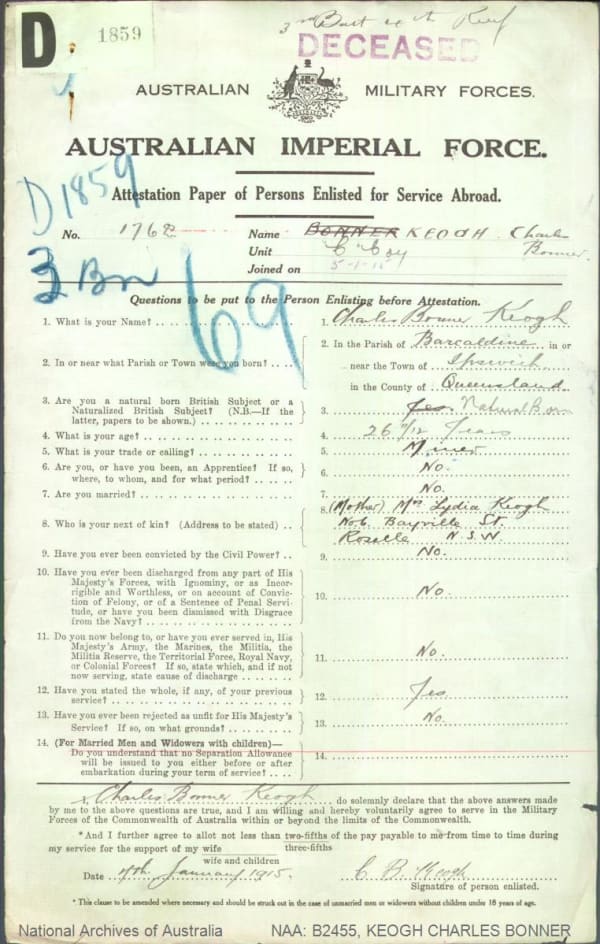 D
1859
3rd
DECEASED
AUSTRALIAN MILITARY FORCES.
AUSTRALIAN IMPERIAL FORCE.
D1859
Attestation Paper of Persons Enlisted for Service Abroad.
No. 1762 Name BONNER KEOGH Charles Bonner.
Unit "C" Coy
Joined on 5-1-15
3 Bn
69
Questions to be put to the Person Enlisting before Attestation.
1. What is your Name? 1. Charles Bonner Keogh
2. In or near what Parish or Town were you born? 2. In the Parish of Barcaldine in or
near the Town of Ipswich
in the County of Queensland
3. Are you a natural born British Subject or a
Naturalized British Subject? (N.B.—If the
latter, papers to be shown.) 3. Yes Natural Born
4. What is your age? 4. 26 11/12 Years
5. What is your trade or calling? 5. Miner
6. Are you, or have you been, an Apprentice? If so,
where, to whom, and for what period? 6. No.
7. Are you married? 7. No.
8. Who is your next of kin? (Address to be stated) 8. (Mother) Mrs Lydia Keogh
No 6 Bayville St.
Rozelle N.S.W
9. Have you ever been convicted by the Civil Power? 9. No.
10. Have you ever been discharged from any part of His
Majesty's Forces, with Ignominy, or as Incor-
rigible and Worthless, or on account of Convic-
tion of Felony, or of a Sentence of Penal Servi-
tude, or have you been dismissed with Disgrace
from the Navy? 10. No.
11. Do you now belong to, or have you ever served in, His
Majesty's Army, the Marines, the Militia, the
Militia Reserve, the Territorial Force, Royal Navy,
or Colonial Forces? If so, state which, and if not
now serving, state cause of discharge 11. No.
12. Have you stated the whole, if any, of your previous
service? 12. Yes
13. Have you ever been rejected as unfit for His Majesty's
Service? If so, on what grounds? 13. No.
14. (For Married Men and Widowers with children)—
Do you understand that no Separation Allowance
will be issued to you either before or after
embarkation during your term of service? 14.
I, Charles Bonner Keogh do solemnly declare that the above answers made
by me to the above questions are true, and I am willing and hereby voluntarily agree to serve in the Military
Forces of the Commonwealth of Australia within or beyond the limits of the Commonwealth.
*And I further agree to allot not less than two-fifths of the pay payable to me from time to time during
three-fifths
my service for the support of my wife
wife and children
Date 4th January 1915. C. B. Keogh
Signature of person enlisted.
* This clause to be amended where necessary and should be struck out in the case of unmarried men or widowers without children under 18 years of age.
National Archives of Australia NAA: B2455, KEOGH CHARLES BONNER